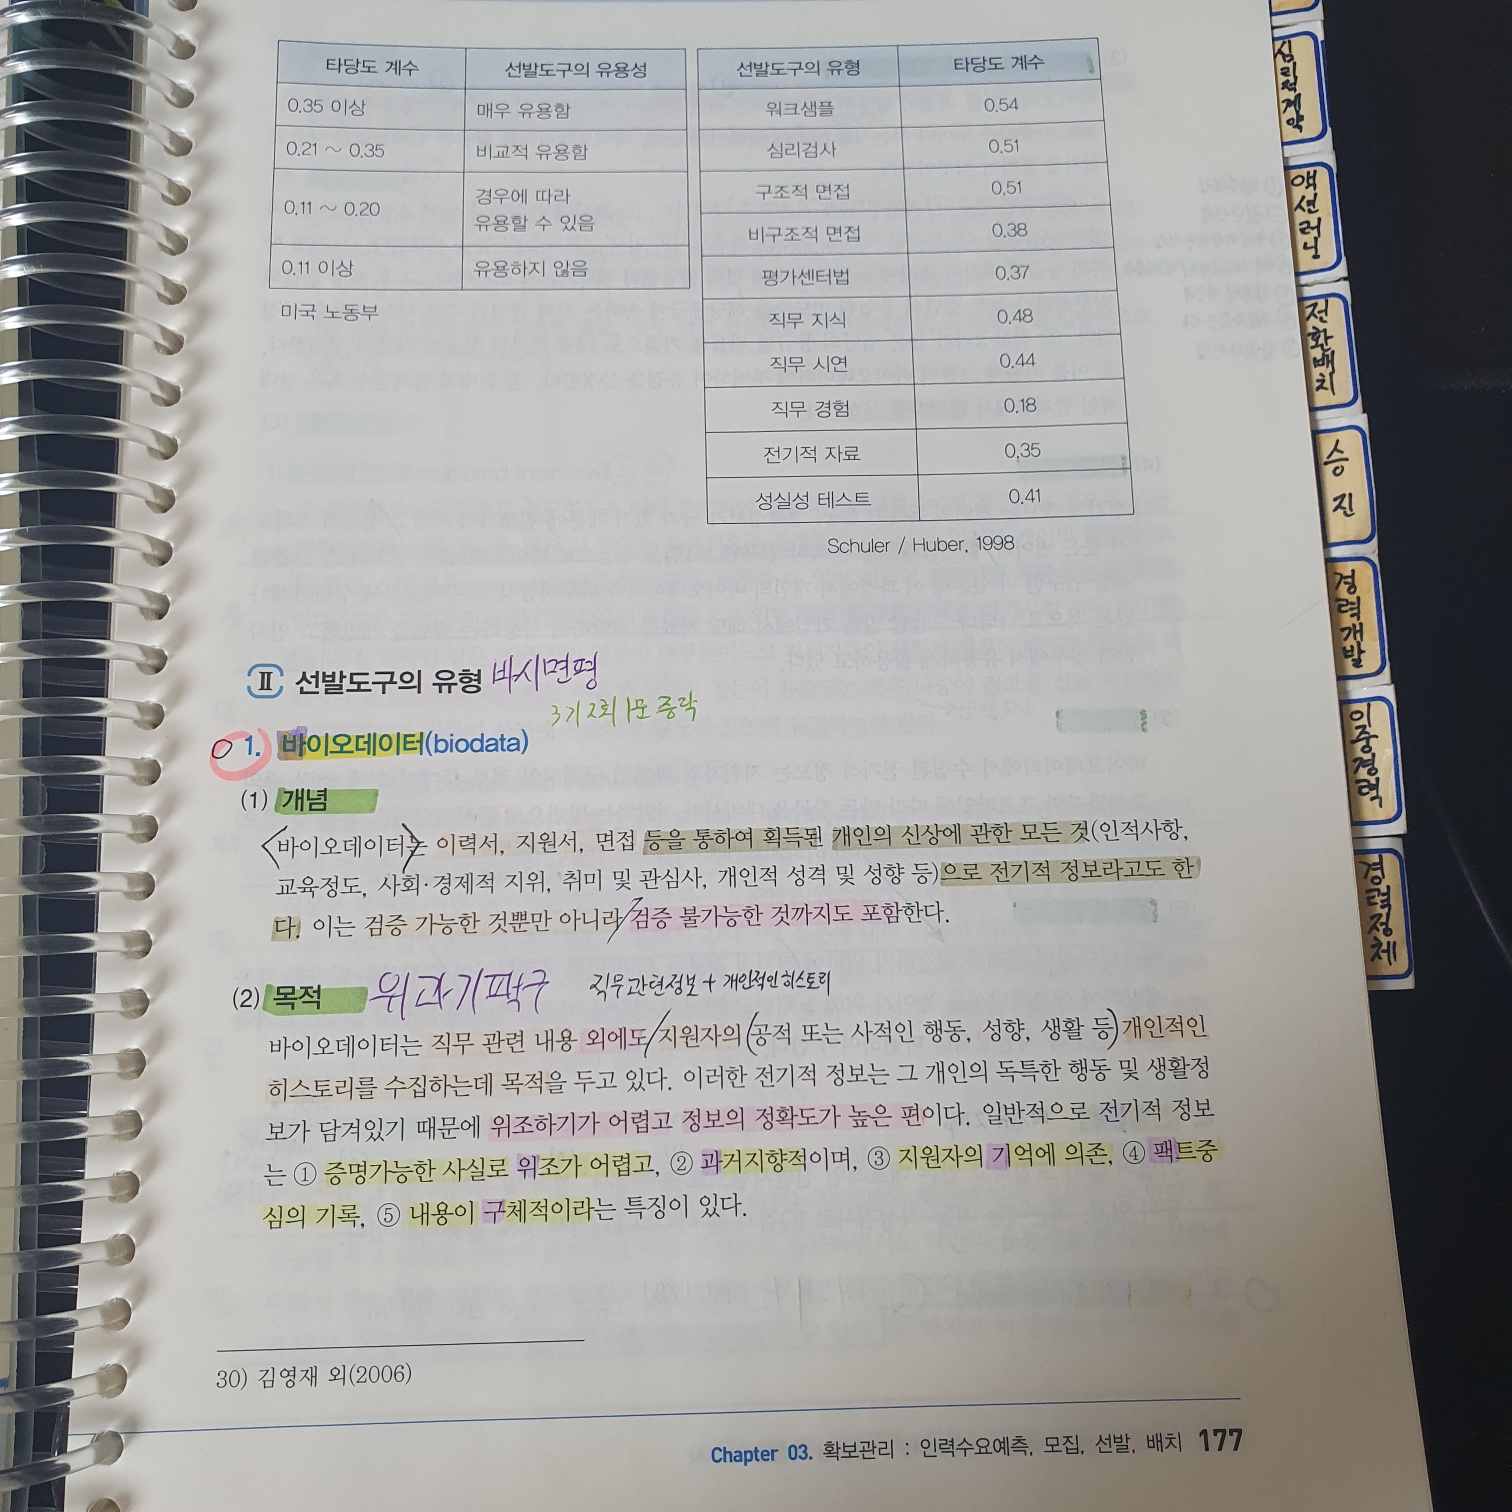 타당도 계수 선발도구의 유용성
0.35 이상 매우 유용함
0.21 ~ 0.35 비교적 유용함
0.11 ~ 0.20 경우에 따라
유용할 수 있음
0.11 이상 유용하지 않음
미국 노동부
선발도구의 유형 타당도 계수
워크샘플 0.54
심리검사 0.51
구조적 면접 0.51
비구조적 면접 0.38
평가센터법 0.37
직무 지식 0.48
직무 시연 0.44
직무 경험 0.18
전기적 자료 0.35
성실성 테스트 0.41
Schuler / Huber, 1998
Ⅱ 선발도구의 유형 바시면평
3기 2회 1모 중락
1. 바이오데이터(biodata)
(1) 개념
바이오데이터는 이력서, 지원서, 면접 등을 통하여 획득된 개인의 신상에 관한 모든 것(인적사항,
교육정도, 사회·경제적 지위, 취미 및 관심사, 개인적 성격 및 성향 등)으로 전기적 정보라고도 한
다. 이는 검증 가능한 것뿐만 아니라 검증 불가능한 것까지도 포함한다.
(2) 목적 위과기팩구 직무관련정보 + 개인적인 히스토리
바이오데이터는 직무 관련 내용 외에도 지원자의 (공적 또는 사적인 행동, 성향, 생활 등) 개인적인
히스토리를 수집하는데 목적을 두고 있다. 이러한 전기적 정보는 그 개인의 독특한 행동 및 생활정
보가 담겨있기 때문에 위조하기가 어렵고 정보의 정확도가 높은 편이다. 일반적으로 전기적 정보
는 ① 증명가능한 사실로 위조가 어렵고, ② 과거지향적이며, ③ 지원자의 기억에 의존, ④ 팩트중
심의 기록, ⑤ 내용이 구체적이라는 특징이 있다.
30) 김영재 외(2006)
Chapter 03. 확보관리 : 인력수요예측, 모집, 선발, 배치 177
심리적계약
액션러닝
전환배치
승진
경력개발
이중경력
경력정체